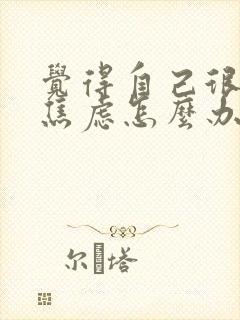 覺得自己很
焦虑怎麼办
尔 塔